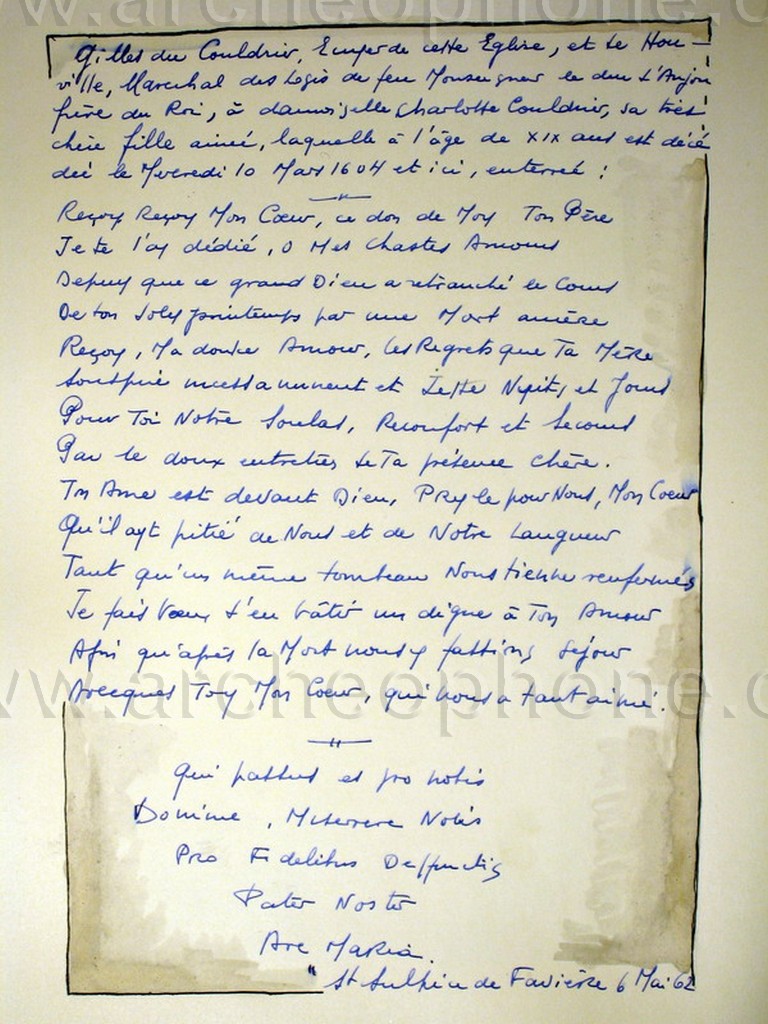 www.archeophone.
Gilles du Couldrier, Escuyer de cette Eglise, et de Hou-
ville, Marechal des Logis de feu Monseigneur le duc d'Anjou
frère du Roi, à damoiselle Charlotte Couldrier, sa très
chère fille ainée, laquelle à l'âge de XIX ans est décé
dée le Mercredi 10 Mars 1604 et ici, enterrée :
Reçoy Reçoy Mon Cœur, ce don de Moy Ton Père
Je te l'ay dédié, O Mes Chastes Amours
Depuy que ce grand Dieu a retranché le Cours
De ton Joly printemps par une Mort amère
Reçoy, Ma douce Amour, les Regrets que Ta Mère
Souspire incessamment et Jette Nuits et Jours
Pour Toi Notre Soulas, Reconfort et Secours
Par le doux entretien de Ta présence Chère.
Ton Ame est devant Dieu, Pry le pour Nous, Mon Coeur
Qu'il ayt pitié de Nous et de Notre Langueur
Tant qu'un même tombeau Nous tienne renfermés
Je fais Vœux d'en bâtir un digne à Ton Amour
Afin qu'après la Mort nous y fassions Séjour
Avecques Toy Mon Coeur, qui nous a tant aimé.
www.archeophone.c
Qui passus es pro nobis
Domine, Miserere Nobis
Pro Fidelibus Deffunctis
Pater Noster
Ave Maria.
" St Sulpice de Favière 6 Mai 62
www.archeophone.c